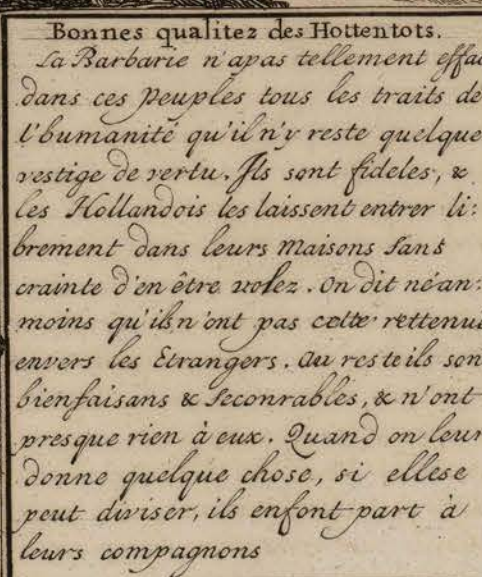 Bonnes qualitez des Hottentots.
La Barbarie n'apas tellement effac
dans ces peuples tous les traits de
l'humanité qu'il n'y reste quelque
vestige de vertu. Ils sont fideles, &
les Hollandois les laissent entrer li:
brement dans leurs Maisons sans
crainte d'en être volez. On dit néan:
moins qu'ils n'ont pas cette rettenuë
envers les Etrangers. Au reste ils son
bienfaisans & seconrables, & n'ont
presque rien à eux. Quand on leur
donne quelque chose, si ellese
peut diviser, ils enfont part à
leurs compagnons